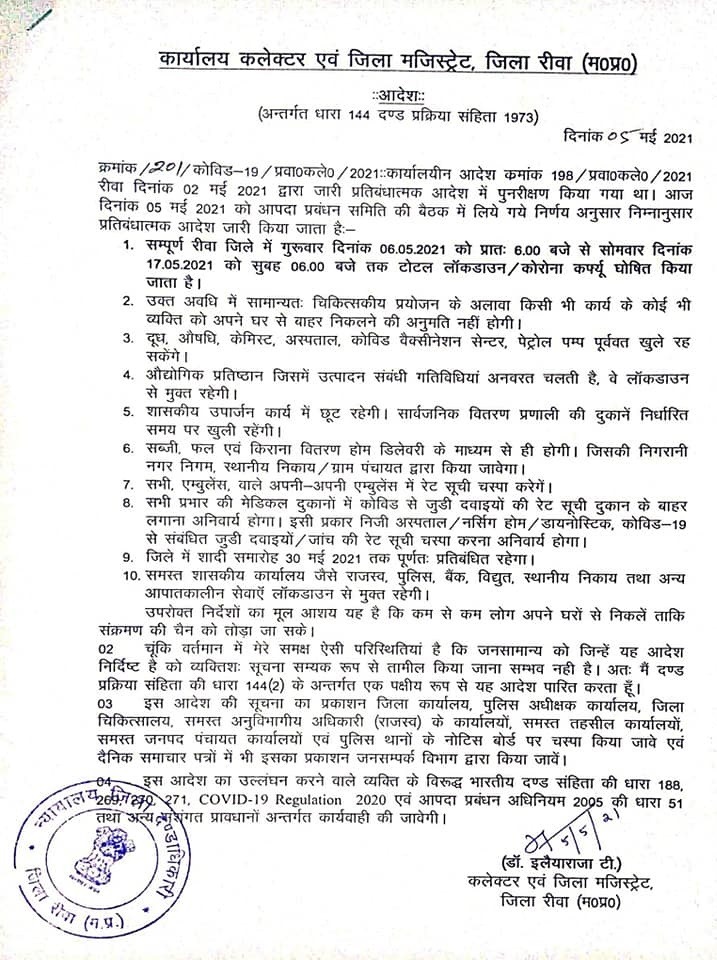 कार्यालय कलेक्टर एवं जिला मजिस्ट्रेट, जिला रीवा (म0प्र0)
::आदेश::
(अन्तर्गत धारा 144 दण्ड प्रक्रिया संहिता 1973)
दिनांक 05 मई 2021
क्रमांक/201/कोविड–19/प्रवा0कले0/2021::कार्यालयीन आदेश क्रमांक 198/प्रवा0कले0/2021
रीवा दिनांक 02 मई 2021 द्वारा जारी प्रतिबंधात्मक आदेश में पुनरीक्षण किया गया था। आज
दिनांक 05 मई 2021 को आपदा प्रबंधन समिति की बैठक में लिये गये निर्णय अनुसार निम्नानुसार
प्रतिबंधात्मक आदेश जारी किया जाता है:–
1. सम्पूर्ण रीवा जिले में गुरूवार दिनांक 06.05.2021 को प्रातः 6.00 बजे से सोमवार दिनांक
17.05.2021 को सुबह 06.00 बजे तक टोटल लॉकडाउन/कोरोना कर्फ्यू घोषित किया
जाता है।
2. उक्त अवधि में सामान्यतः चिकित्सकीय प्रयोजन के अलावा किसी भी कार्य के कोई भी
व्यक्ति को अपने घर से बाहर निकलने की अनुमति नहीं होगी।
3. दूध, औषधि, केमिस्ट, अस्पताल, कोविड वैक्सीनेशन सेन्टर, पेट्रोल पम्प पूर्ववत खुले रह
सकेंगे।
4. औद्योगिक प्रतिष्ठान जिसमें उत्पादन संबंधी गतिविधियां अनवरत चलती है, वे लॉकडाउन
से मुक्त रहेगी।
5. शासकीय उपार्जन कार्य में छूट रहेगी। सार्वजनिक वितरण प्रणाली की दुकानें निर्धारित
समय पर खुली रहेंगी।
6. सब्जी, फल एवं किराना वितरण होम डिलेवरी के माध्यम से ही होगी। जिसकी निगरानी
नगर निगम, स्थानीय निकाय/ग्राम पंचायत द्वारा किया जावेगा।
7. सभी, एम्बुलेंस, वाले अपनी–अपनी एम्बुलेंस में रेट सूची चस्पा करेगें।
8. सभी प्रभार की मेडिकल दुकानों में कोविड से जुडी दवाइयों की रेट सूची दुकान के बाहर
लगाना अनिवार्य होगा। इसी प्रकार निजी अस्पताल/नर्सिग होम/डायनोस्टिक, कोविड–19
से संबंधित जुडी दवाइयों/जांच की रेट सूची चस्पा करना अनिवार्य होगा।
9. जिले में शादी समारोह 30 मई 2021 तक पूर्णतः प्रतिबंधित रहेगा।
10. समस्त शासकीय कार्यालय जैसे राजस्व, पुलिस, बैंक, विद्युत, स्थानीय निकाय तथा अन्य
आपातकालीन सेवाऐं लॉकडाउन से मुक्त रहेगी।
उपरोक्त निर्देशों का मूल आशय यह है कि कम से कम लोग अपने घरों से निकलें ताकि
संक्रमण की चैन को तोड़ा जा सके।
02 चूंकि वर्तमान में मेरे समक्ष ऐसी परिस्थितियां है कि जनसामान्य को जिन्हें यह आदेश
निर्दिष्ट है को व्यक्तिशः सूचना सम्यक रूप से तामील किया जाना सम्भव नही है। अतः मैं दण्ड
प्रक्रिया संहिता की धारा 144(2) के अन्तर्गत एक पक्षीय रूप से यह आदेश पारित करता हूँ।
03 इस आदेश की सूचना का प्रकाशन जिला कार्यालय, पुलिस अधीक्षक कार्यालय, जिला
चिकित्सालय, समस्त अनुविभागीय अधिकारी (राजस्व) के कार्यालयों, समस्त तहसील कार्यालयों,
समस्त जनपद पंचायत कार्यालयों एवं पुलिस थानों के नोटिस बोर्ड पर चस्पा किया जावे एवं
दैनिक समाचार पत्रों में भी इसका प्रकाशन जनसम्पर्क विभाग द्वारा किया जावें।
04 इस आदेश का उल्लंघन करने वाले व्यक्ति के विरूद्ध भारतीय दण्ड संहिता की धारा 188,
269, 270, 271, COVID-19 Regulation 2020 एवं आपदा प्रबंधन अधिनियम 2005 की धारा 51
तथा अन्य सुसंगत प्रावधानों अन्तर्गत कार्यवाही की जावेगी।
5/5/21
(डॉ. इलैयाराजा टी.)
कलेक्टर एवं जिला मजिस्ट्रेट,
जिला रीवा (म0प्र0)
न्यायालय जिला दण्डाधिकारी
जिला रीवा (म.प्र.)